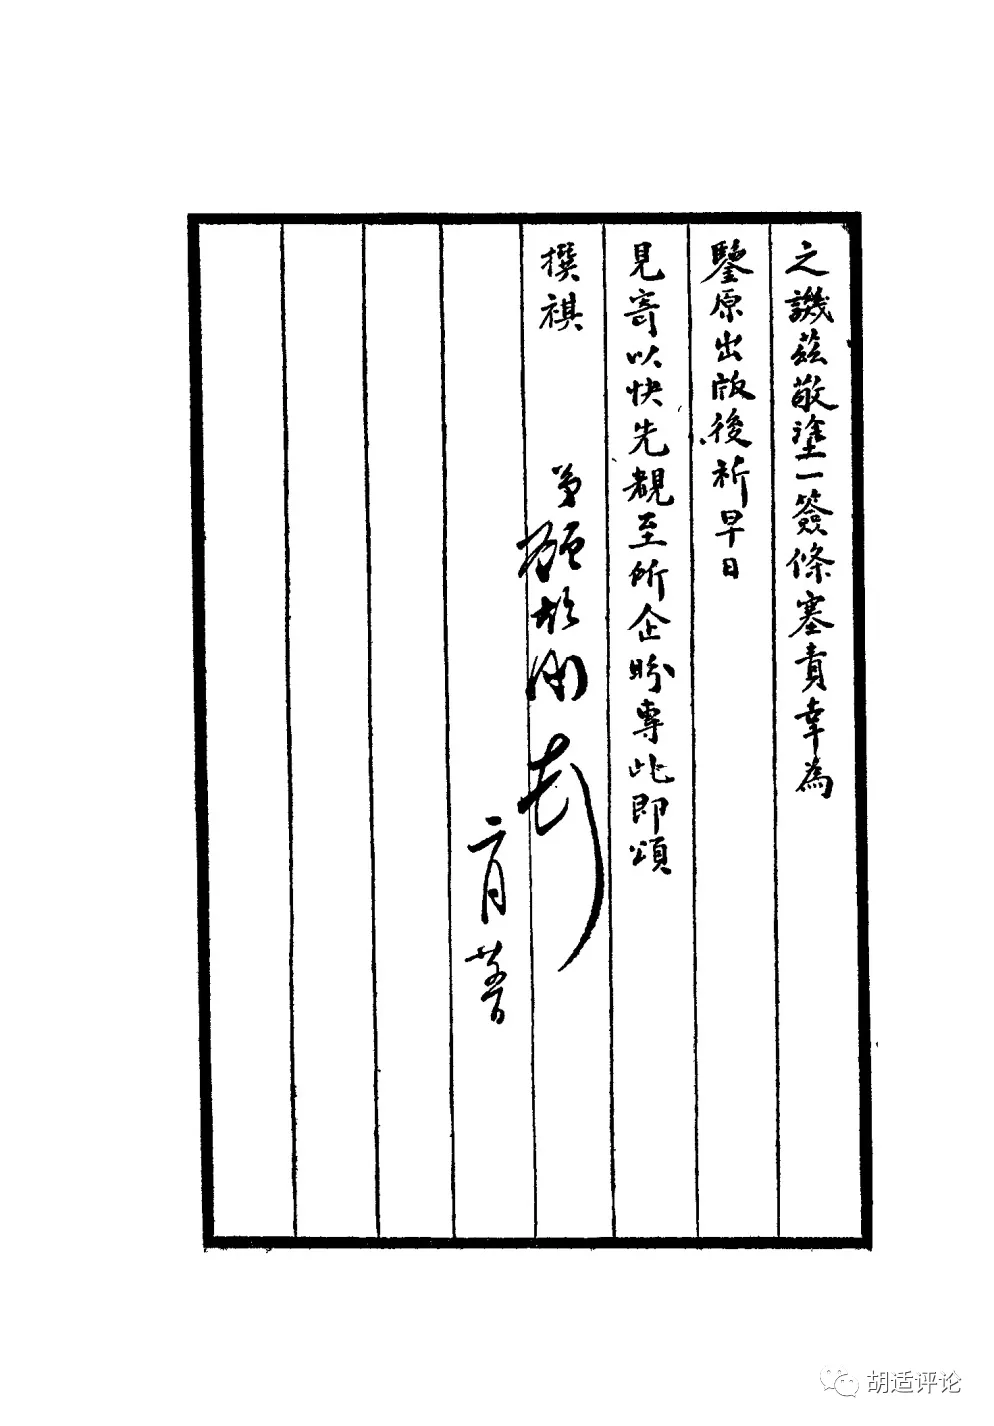 之譏茲敬塗一簽條塞責幸為
鑒原出版後祈早日
見寄以快先覩至所企盼專此即頌
撰祺
弟
二月
胡适评论